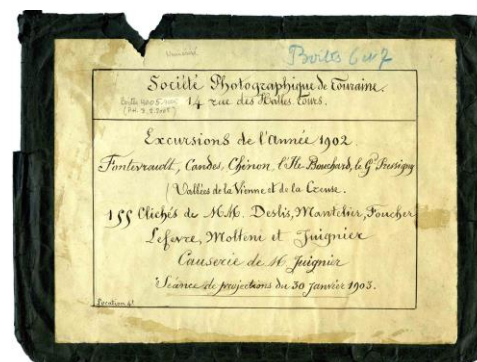 Boîtes 6 et 7
Société Photographique de Touraine.
14 rue des Halles Tours.
Excursions de l'Année 1902
Fontevrault, Candes, Chinon, l'Ile Bouchard, le Gd Pressigny
(Vallées de la Vienne et de la Creuse.
155 Clichés de MM. Deslis, Mantelier, Foucher
Lefevre, Molteni et Juignier
Causerie de M Juignier
Séance de projections du 30 Janvier 1903.